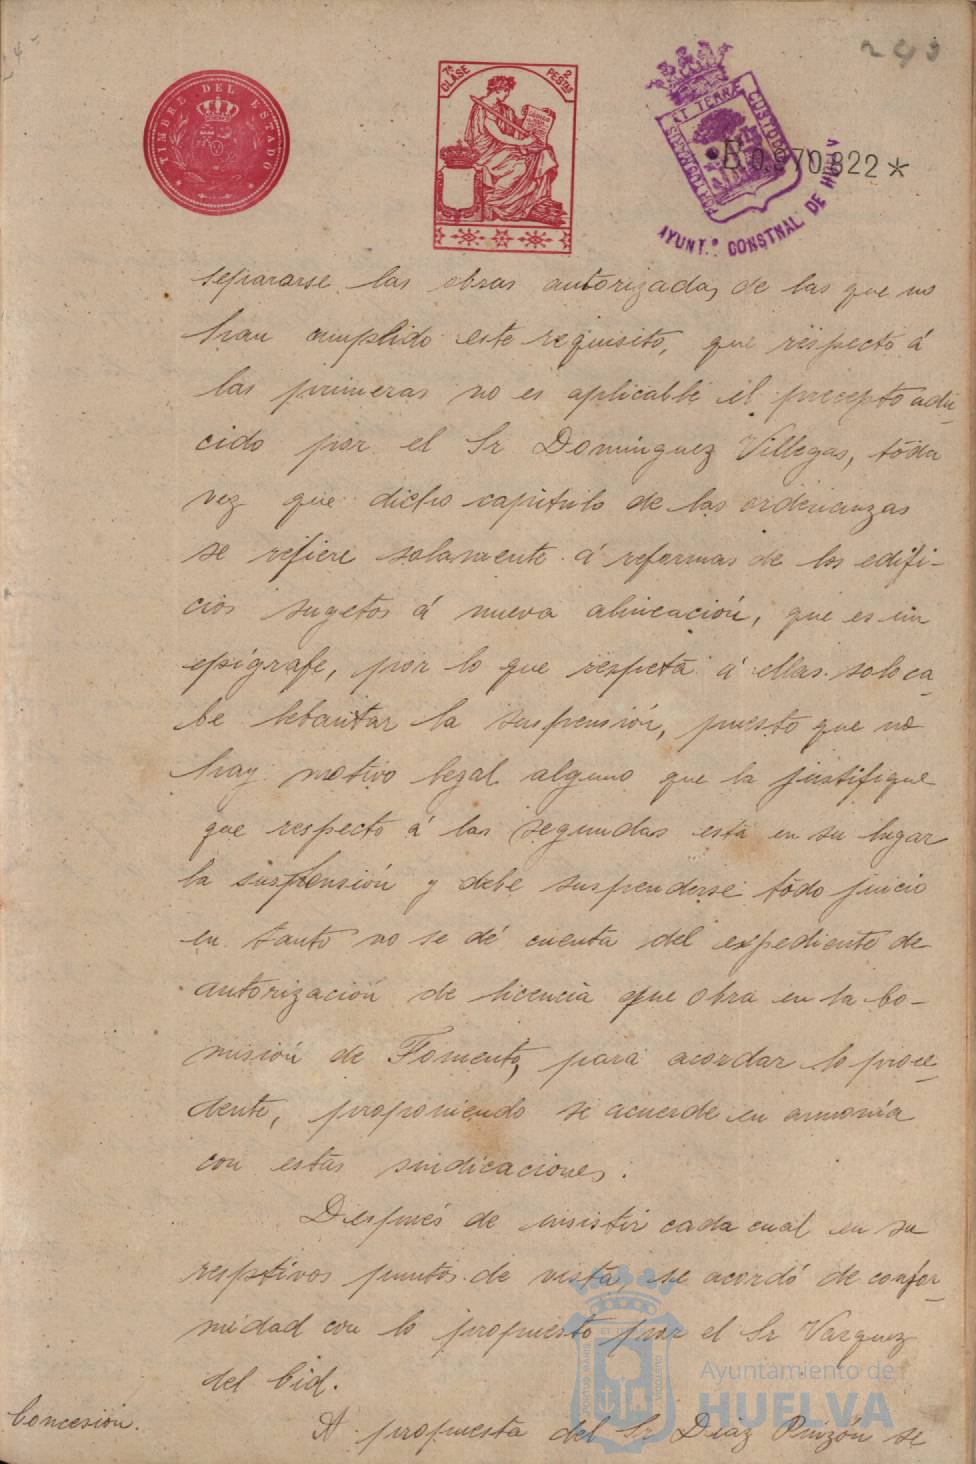 243
TIMBRE DEL ESTADO
7ª CLASE 2 PESETAS
PORTUS MARIS ET TERRÆ CUSTODIA
AYUNT.º CONSTNAL DE HUELV
B.0.970.822*
separarse las obras autorizadas de las que no
han cumplido este requisito, que respecto á
las primeras no es aplicable el precepto adu-
cido por el Sr Domínguez Villegas, toda
vez que dicho capitulo de las ordenanzas
se refiere solamente á reformas de los edifi-
cios sugetos á nueva alineación, que es un
epígrafe, por lo que respeta á ellas solo ca-
be lebantar la suspensión, puesto que no
hay motivo legal alguno que la justifique
que respecto á las segundas está en su lugar
la suspensión y debe suspenderse todo juicio
en tanto no se dé cuenta del expediente de
autorización de licencia que obra en la Co-
misión de Fomento, para acordar lo proce-
dente, proponiendo se acuerde en armonía
con estas indicaciones.
Después de insistir cada cual en su
resptivos puntos de vista, se acordó de confor-
midad con lo propuesto por el Sr Vazquez
del Cid.
Concesión.
A propuesta del Sr Diaz Pinzón se
Ayuntamiento de
HUELVA